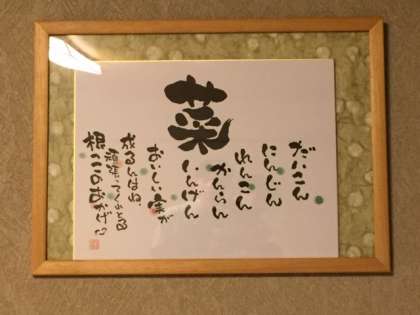 菜
だいこん
にんじん
れんこん
かんらん
いんげん
おいしい実が
成るんはね
頑張ってくれとる
根っこのおかげ